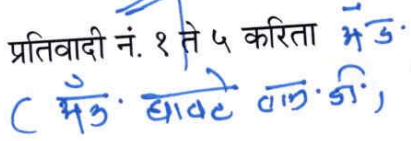 प्रतिवादी नं. १ ते ५ करिता ॲड.
( ॲड. घावटे